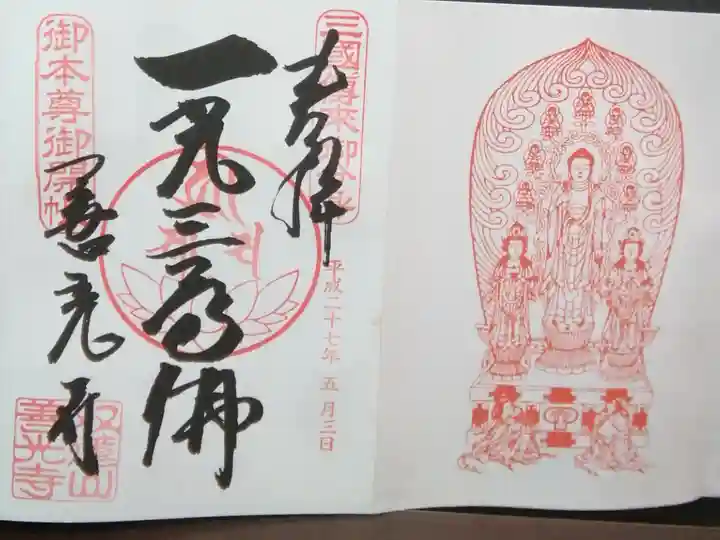 奉拝
三國傳来御分身
平成二十七年 五月三日
一光三尊佛
御本尊御開帳
善光寺
善光寺